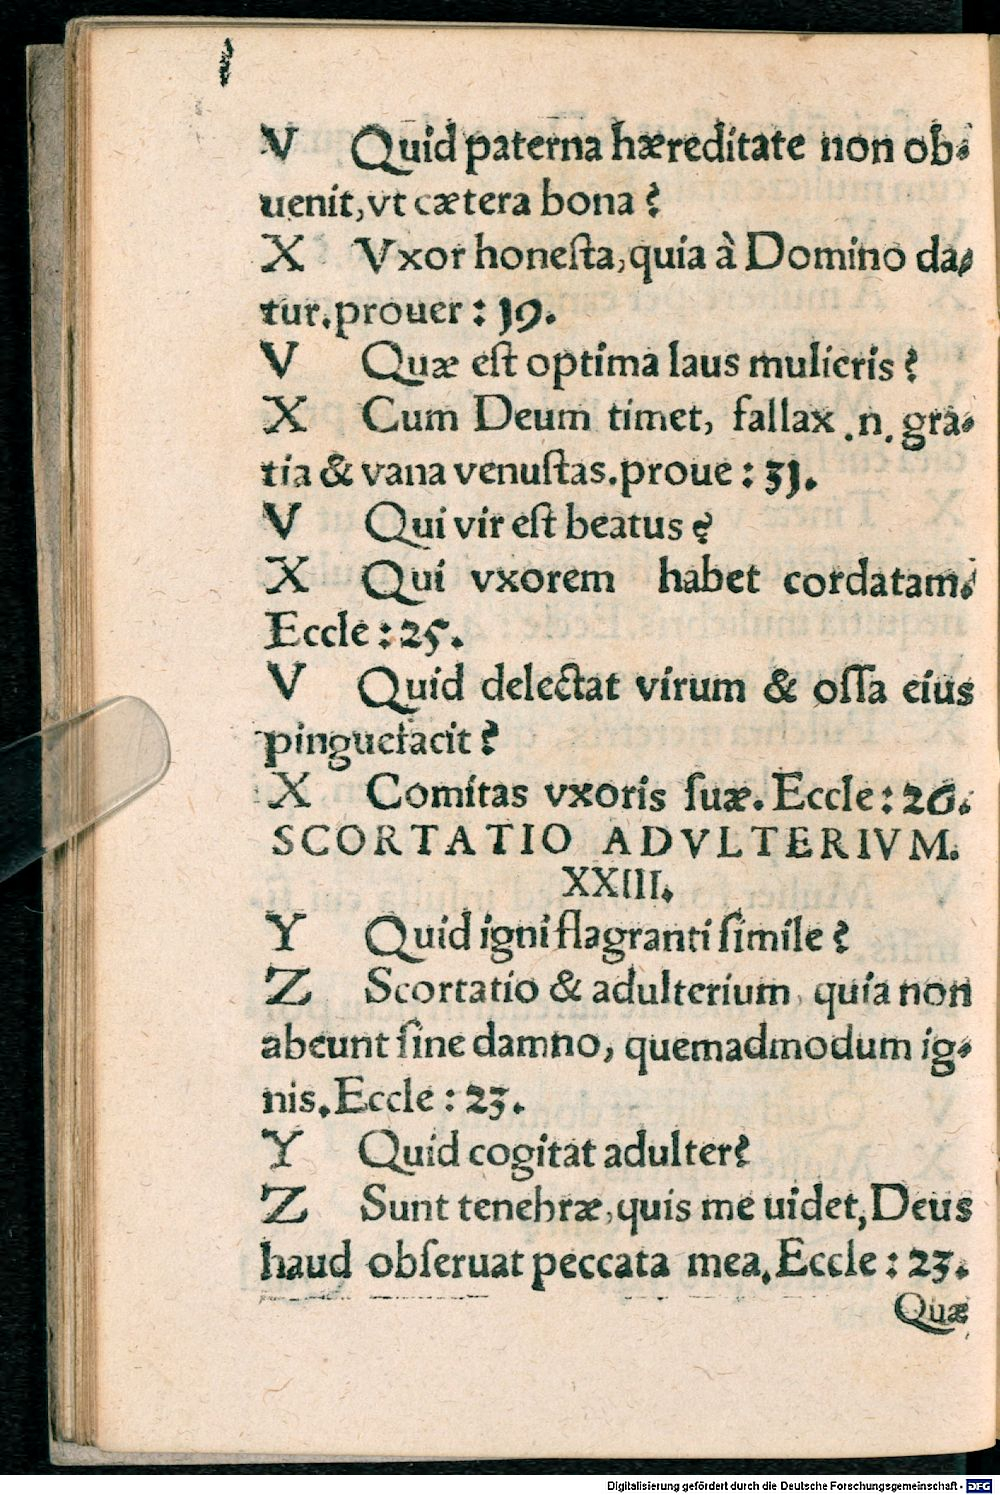 V Quid paterna hæreditate non ob-
uenit, vt cætera bona?
X Vxor honeſta, quia à Domino da-
tur. prouer: 19.
V Quæ eſt optima laus mulieris?
X Cum Deum timet, fallax .n. gra-
tia & vana venuſtas. proue: 31.
V Qui vir eſt beatus?
X Qui vxorem habet cordatam.
Eccle: 25.
V Quid delectat virum & oſſa eius
pinguefacit?
X Comitas vxoris ſuæ. Eccle: 26.
SCORTATIO ADVLTERIVM.
XXIII.
Y Quid igni flagranti ſimile?
Z Scortatio & adulterium, quia non
abeunt ſine damno, quemadmodum ig-
nis. Eccle: 23.
Y Quid cogitat adulter?
Z Sunt tenebræ, quis me uidet, Deus
haud obſeruat peccata mea. Eccle: 23.
Quæ
Digitalisierung gefördert durch die Deutsche Forschungsgemeinschaft - DFG